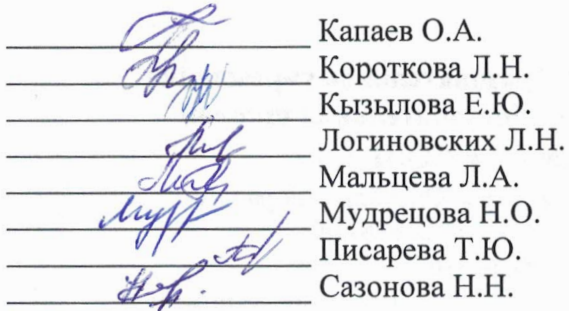 Капаев О.А.
Короткова Л.Н.
Кызылова Е.Ю.
Логиновских Л.Н.
Мальцева Л.А.
Мудрецова Н.О.
Писарева Т.Ю.
Сазонова Н.Н.